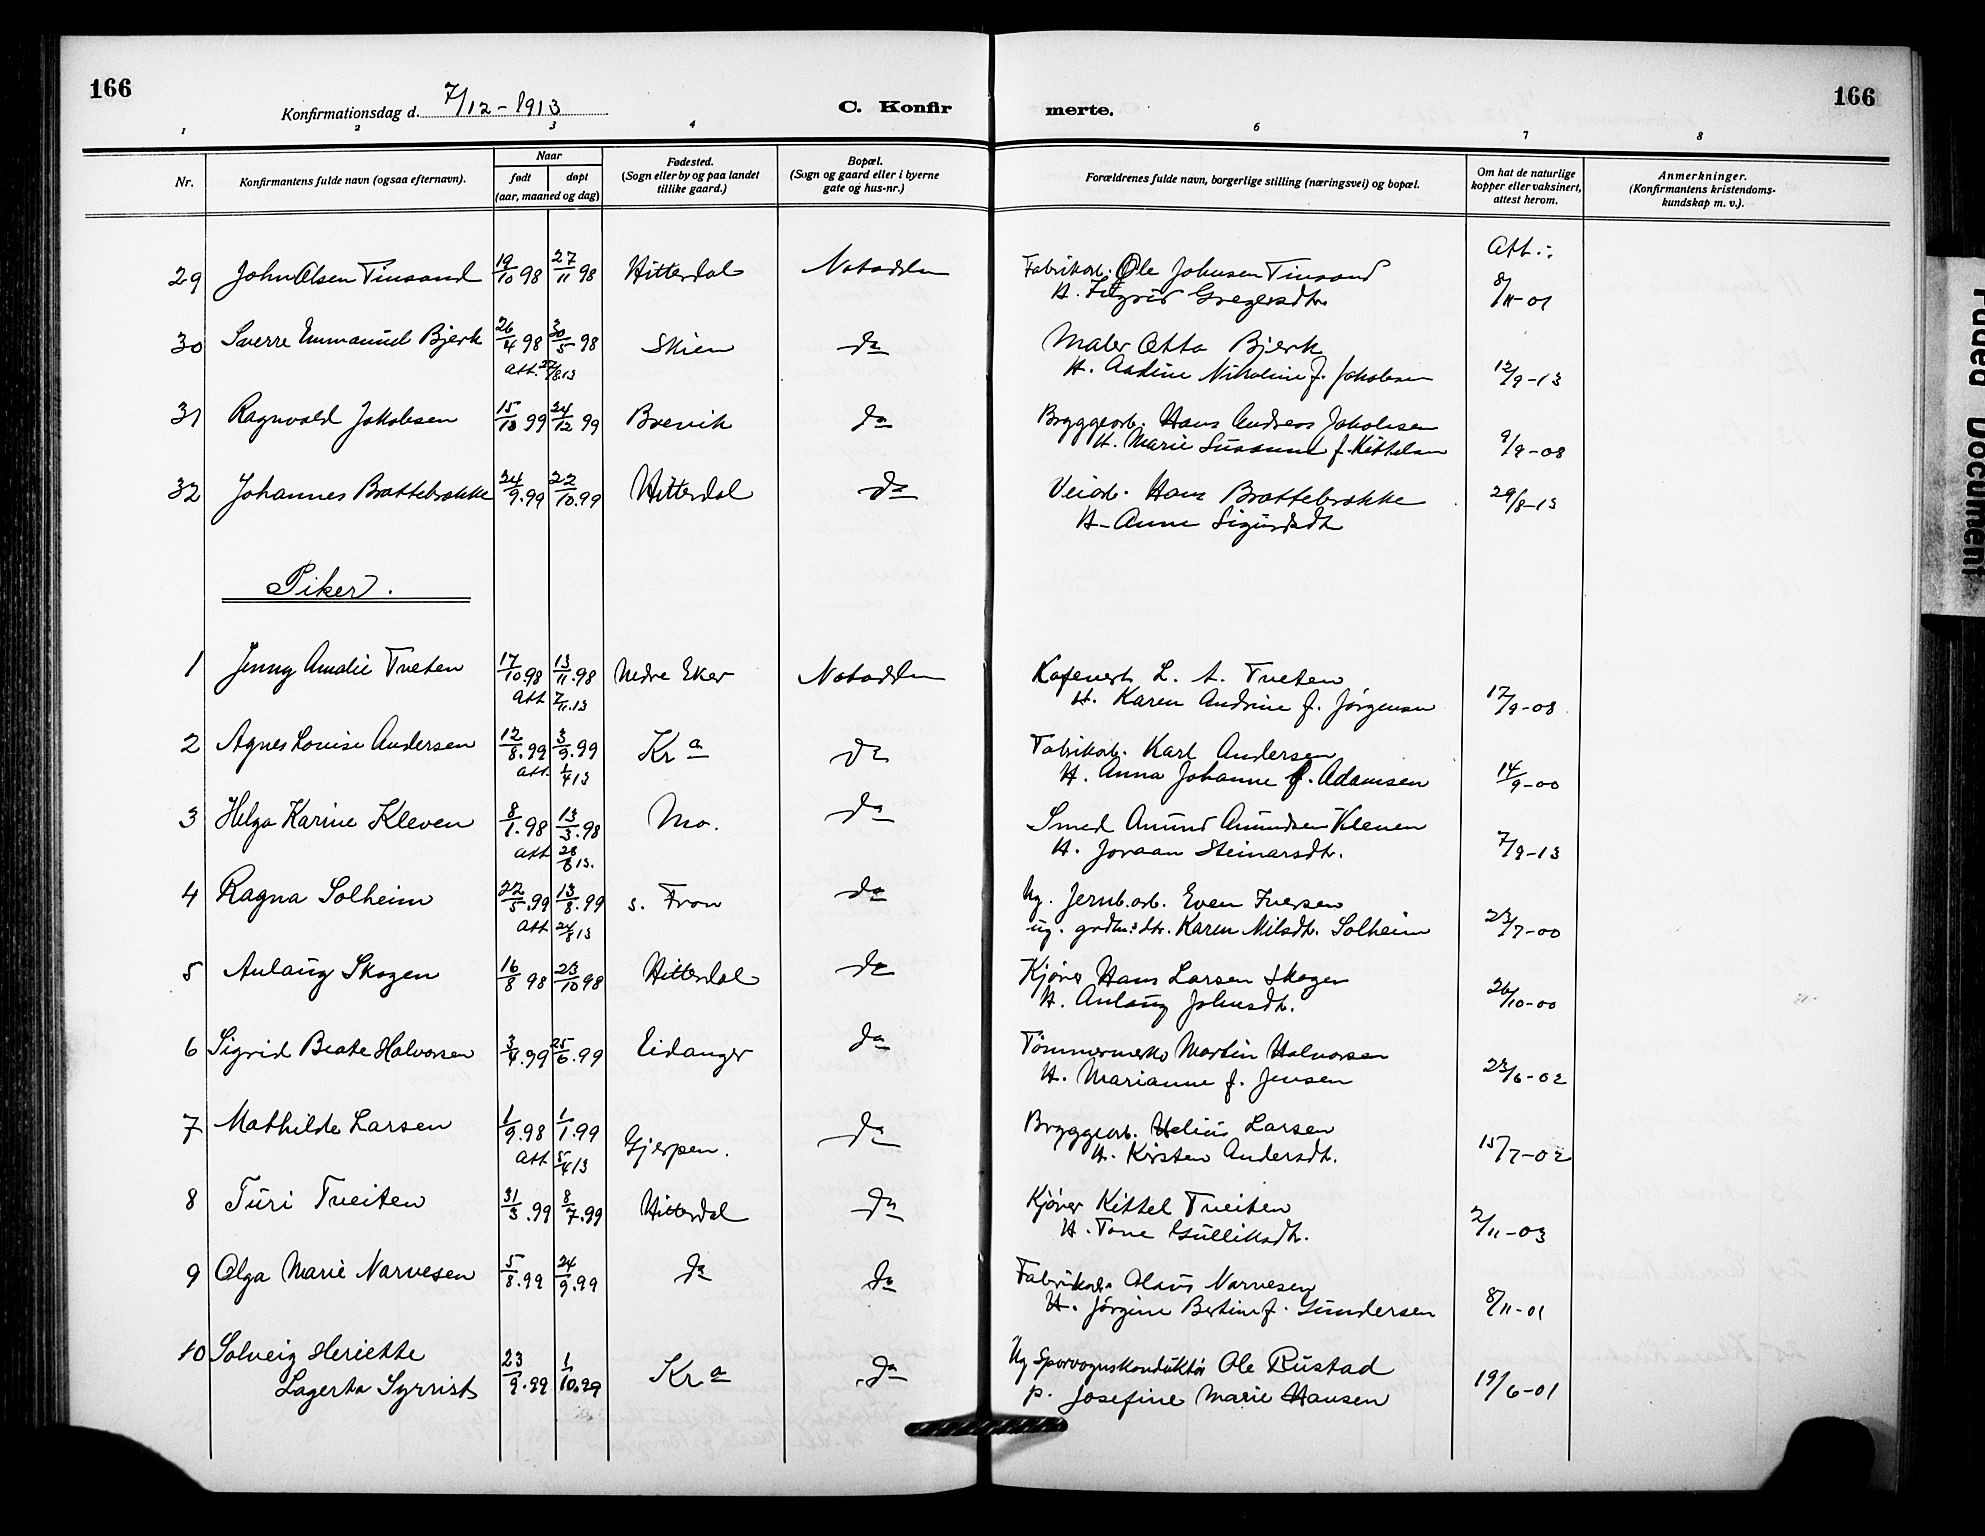 166
Konfirmationsdag d. 7/12 - 1913
C. Konfir
merte.
166
1 2 3 4 6 7 8
Nr.
Konfirmantens fulde navn (ogsaa efternavn).
Naar
født
døpt
(aar, maaned og dag)
Fødested.
(Sogn eller by og paa landet
tillike gaard.)
Bopæl.
(Sogn og gaard eller i byerne
gate og hus-nr.)
Forældrenes fulde navn, borgerlige stilling (næringsvei) og bopæl.
Om hat de naturlige
kopper eller vaksinert,
attest herom.
Anmerkninger.
(Konfirmantens kristendoms-
kundskap m. v.).
Att.:
29 John Olsen Tinsand 19/10 98 27/11 98 Hitterdal Notodden Fabrikarb. Ole Johnsen Tinsand
H. Ingrid Gregersdtr. 8/11-01
30 Sverre Emmanuel Bjerk 26/4 98 30/5 98 Skien do Maler Otto Bjerk
att. 27/8 13 H. Andine Nikoline f. Jakobsen 12/9-13
31 Ragnvald Jakobsen 15/10 99 24/12 99 Brevik do Bryggearb. Hans Andreas Jakobsen
H. Marie Susanne f. Kittelsen 9/9-08
32 Johannes Brattebrække 24/9.99 22/10.99 Hitterdal do Veiarb. Hans Brattebrække 29/8-13
H. Anne Sigurdsdtr
Piker.
1 Jenny Amalie Tveten 17/10.98 13/11.98 Nedre Eker Notodden Kafevert L. A. Tveten
att 7/11.13 H. Karen Andrine f. Jørgensen 17/9-08
2 Agnes Louise Andersen 12/8.99 3/9.99 Kra do Fabrikarb. Karl Andersen
att. 1/4 13 H. Anna Johanne f. Adamsen 14/9-00
3 Helga Karine Kleven 8/1.98 13/3.98 Mo. do Smed Amund Amundsen Kleven
att 28/8 13. H. Joraan Steinarsdtr. 7/9-13
4 Ragna Solheim 22/5.99 13/8.99 s. Fron do Ug. Jernb.arb. Even Iversen
att 24/8 13 ug. grdm.dtr. Karen Nilsdtr. Solheim 23/7-00
5 Aulaug Skogen 16/8 98 23/10 98 Hitterdal do Kjører Hans Larsen Skogen
H. Aulaug Johnsdtr. 26/10-00
6 Sigrid Beate Halvorsen 3/4.99 25/6.99 Eidanger do Tømmermerk. Martin Halvorsen
H. Marianne f. Jensen 23/6-02
7 Mathilde Larsen 1/9.98 1/1.99 Gjerpen. do Bryggearb. Helius Larsen
att 5/4 13 H. Kirsten Andersdtr. 15/7-02
8 Turi Tveiten 31/3.99 8/7.99 Hitterdal do Kjører Kittel Tveiten
H. Tone Gulliksdtr. 2/11-03
9 Olga Marie Narvesen 5/8.99 24/9.99 do do Fabrikarb. Olaus Narvesen
H. Jørgine Bertine f. Gundersen 8/11-01
10 Solveig Heriette 23/9.99 1/10.99 Kra do Ug Sporvognskonduktør Ole Rustad
Lagerta Syrrist p. Josefine Marie Hansen 19/6-01